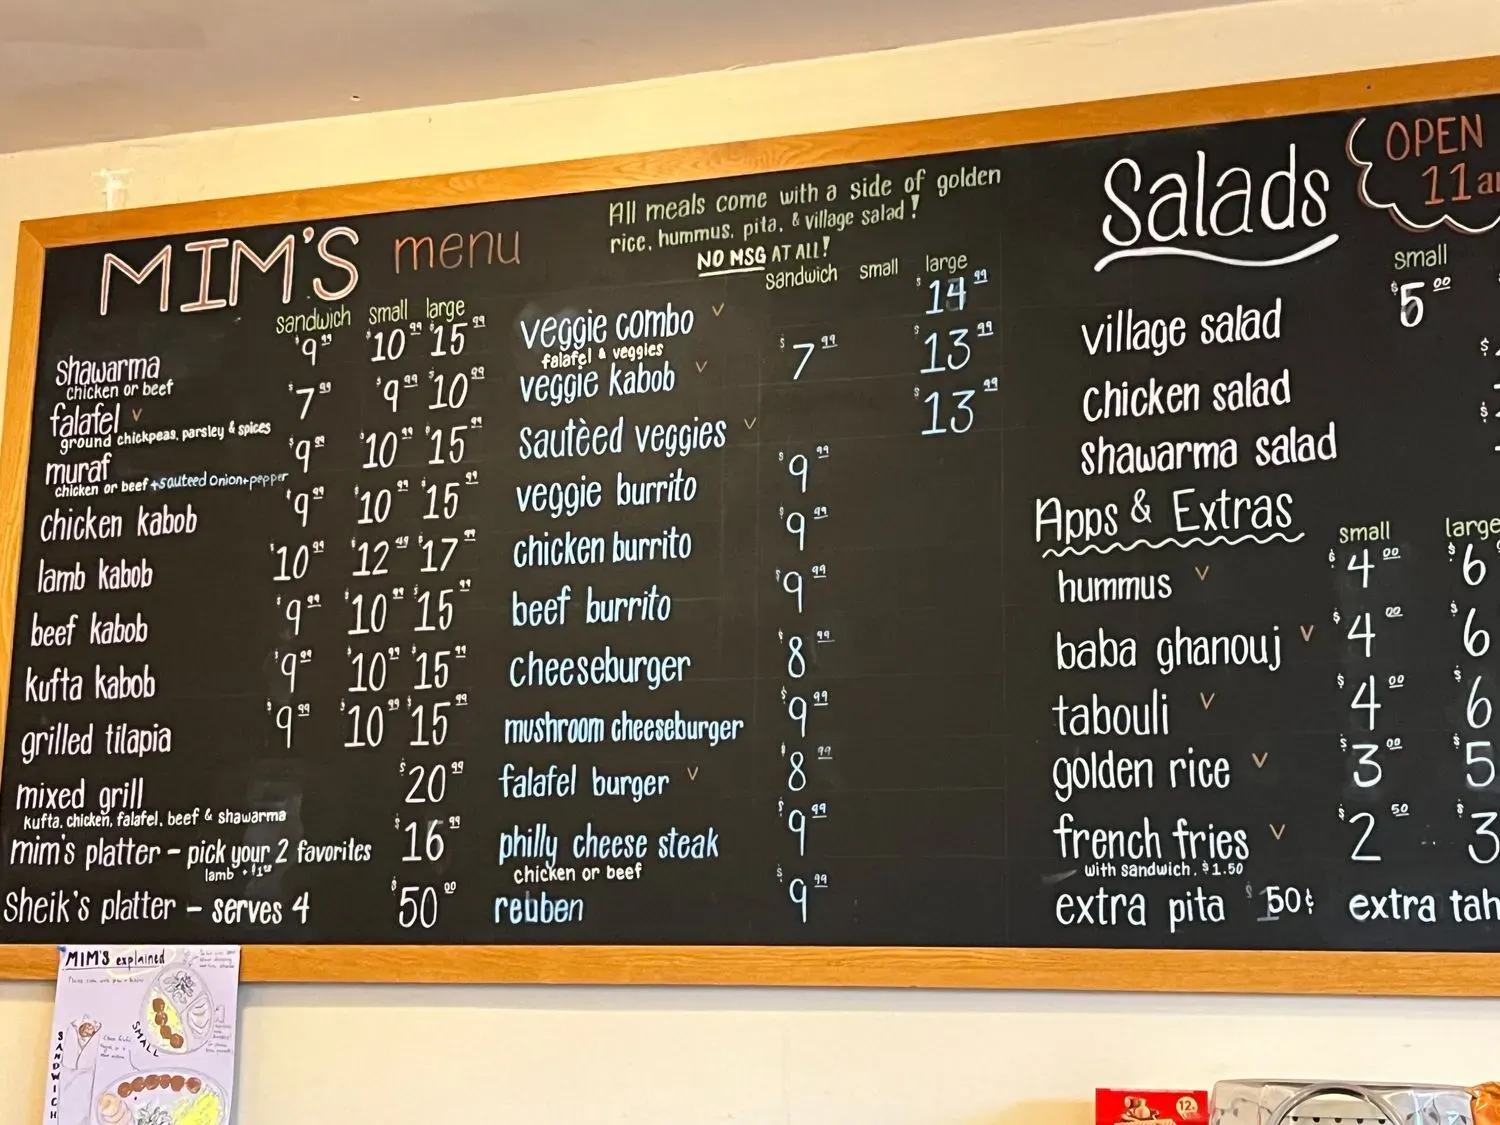 MIM'S menu
All meals come with a side of golden
rice, hummus, pita, & village salad!
NO MSG AT ALL!
sandwich small large
shawarma $9.99 $10.99 $15.99
chicken or beef
falafel v $7.99 $9.99 $10.99
ground chickpeas, parsley & spices
muraf $9.99 $10.99 $15.99
chicken or beef + sauteed onion + pepper
chicken kabob $9.99 $10.99 $15.99
lamb kabob $10.99 $12.49 $17.99
beef kabob $9.99 $10.99 $15.99
kufta kabob $9.99 $10.99 $15.99
grilled tilapia $9.99 $10.99 $15.99
mixed grill $20.99
kufta, chicken, falafel, beef & shawarma
mim's platter - pick your 2 favorites $16.99
lamb +
sheik's platter - serves 4 $50.00
sandwich small large
veggie combo v $14.99
falafel & veggies
veggie kabob v $7.99 $13.99
sautèed veggies v $13.99
veggie burrito $9.99
chicken burrito $9.99
beef burrito $9.99
cheeseburger $8.99
mushroom cheeseburger $9.99
falafel burger v $8.99
philly cheese steak $9.99
chicken or beef
reuben $9.99
Salads
OPEN
11a
small
village salad $5.00
chicken salad $
shawarma salad $
Apps & Extras
small large
hummus v $4.00 $6
baba ghanouj v $4.00 $6
tabouli v $4.00 $6
golden rice v $3.00 $5
french fries v $2.50 $3
with sandwich, $1.50
extra pita 50¢ extra tah
MIM'S explained
SMALL
SANDWICH
12